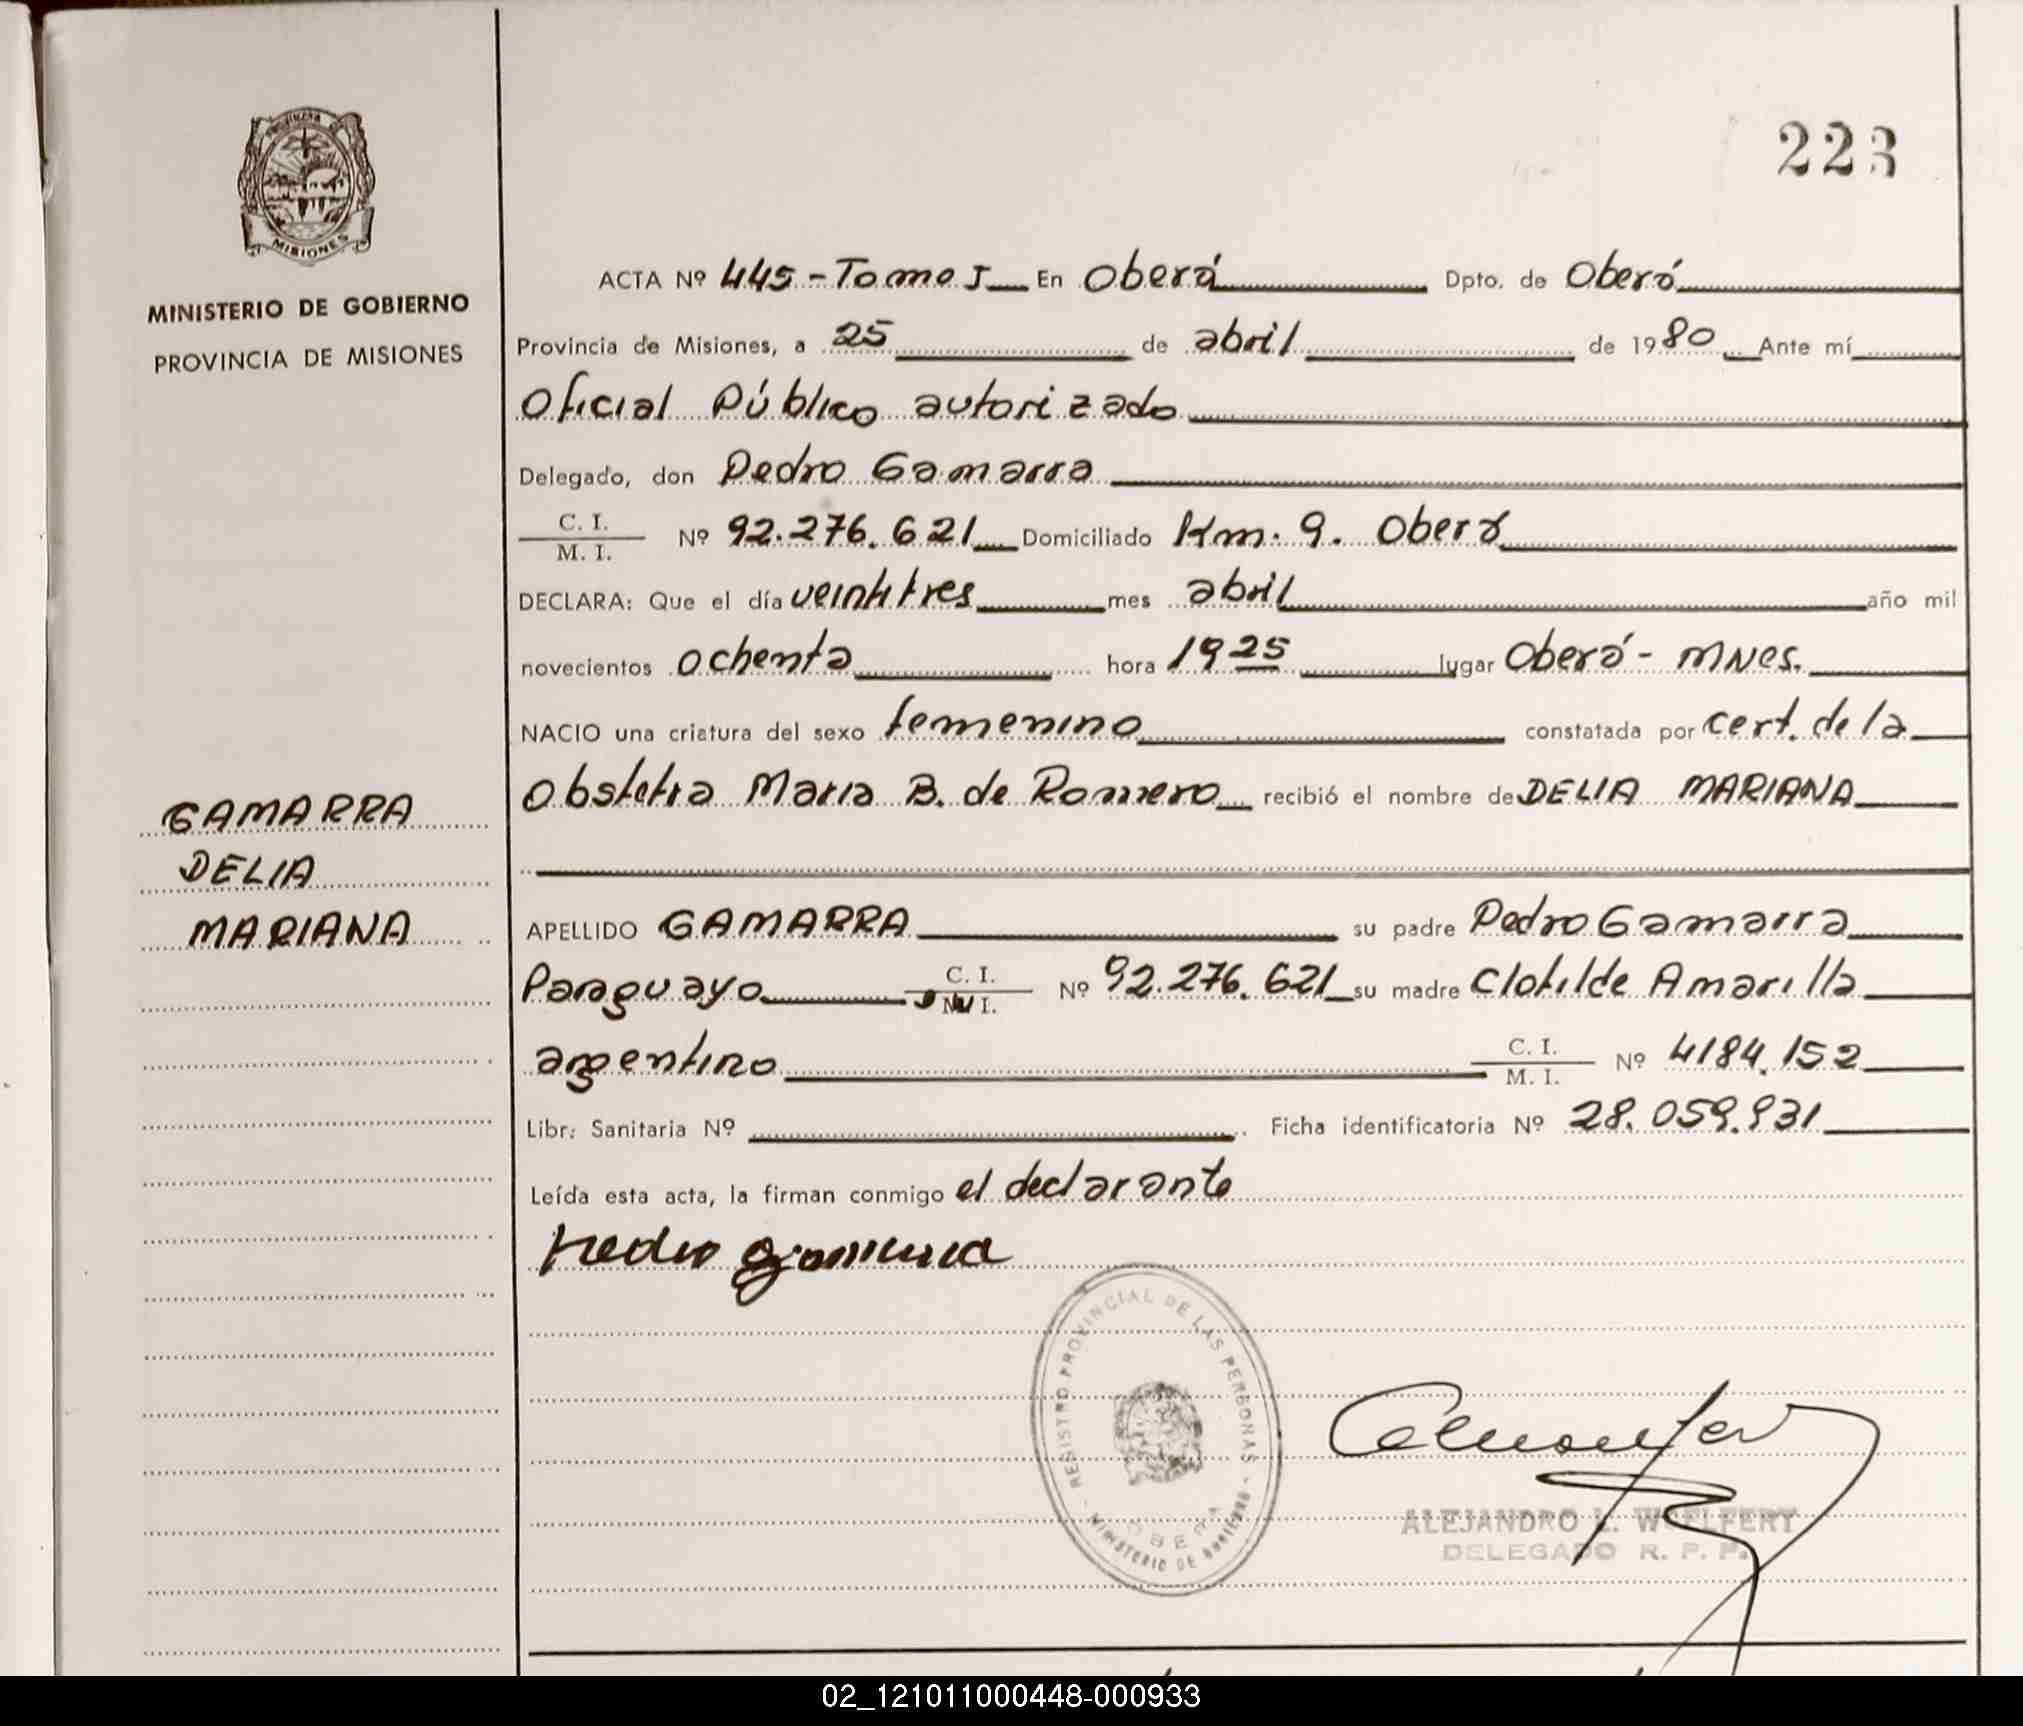 223
PROVINCIA DE
MISIONES
MINISTERIO DE GOBIERNO
PROVINCIA DE MISIONES
ACTA Nº 445 - Tomo I En Oberá Dpto. de Oberá
Provincia de Misiones, a 25 de abril de 1980 Ante mí
Oficial Público autorizado
Delegado, don Pedro Gamarra
C. I.
M. I. Nº 92.276.621 Domiciliado Km. 9. Oberá
DECLARA: Que el día veintitres mes abril año mil
novecientos ochenta hora 1925 lugar Oberá - MNes.
NACIO una criatura del sexo femenino constatada por cert. de la
Obstetra Maria B. de Romero recibió el nombre de DELIA MARIANA
GAMARRA
DELIA
MARIANA
APELLIDO GAMARRA su padre Pedro Gamarra
Paraguayo C. I.
M. I. Nº 92.276.621 su madre Clotilde Amarilla
argentino C. I.
M. I. Nº 4184.152
Libr: Sanitaria Nº Ficha identificatoria Nº 28.059.931
Leída esta acta, la firman conmigo el declarante
Pedro Gamarra
REGISTRO PROVINCIAL DE LAS PERSONAS - MINISTERIO DE GOBIERNO -
OBERA
ALEJANDRO L. WOELFERT
DELEGADO R. P. P.
02_121011000448-000933